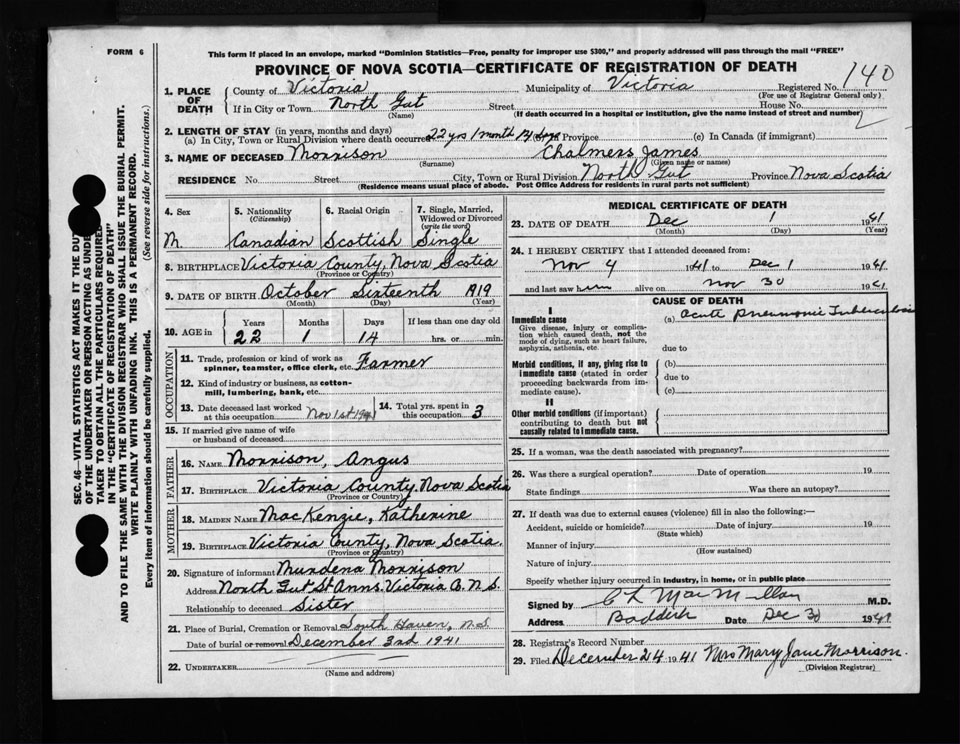 FORM 6
This form if placed in an envelope, marked "Dominion Statistics—Free, penalty for improper use $300," and properly addressed will pass through the mail "FREE"
PROVINCE OF NOVA SCOTIA—CERTIFICATE OF REGISTRATION OF DEATH
140
1. PLACE OF DEATH
County of Victoria Municipality of Victoria Registered No.
(For use of Registrar General only)
If in City or Town North Gut Street House No.
(Name) (If death occurred in a hospital or institution, give the name instead of street and number)
2. LENGTH OF STAY (in years, months and days)
(a) In City, Town or Rural Division where death occurred 22 yrs 1 month 14 days Province (c) In Canada (if immigrant)
3. NAME OF DECEASED Morrison Chalmers James
(Surname) (Given name or names)
RESIDENCE No. Street City, Town or Rural Division North Gut Province Nova Scotia
(Residence means usual place of abode. Post Office Address for residents in rural parts not sufficient)
4. Sex 5. Nationality (Citizenship) 6. Racial Origin 7. Single, Married, Widowed or Divorced (write the word)
M. Canadian Scottish Single
8. BIRTHPLACE Victoria County, Nova Scotia
(Province or Country)
9. DATE OF BIRTH October Sixteenth 1919
(Month) (Day) (Year)
10. AGE in Years Months Days If less than one day old
22 1 14 hrs. or min.
OCCUPATION
11. Trade, profession or kind of work as spinner, teamster, office clerk, etc. Farmer
12. Kind of industry or business, as cotton-mill, lumbering, bank, etc.
13. Date deceased last worked at this occupation Nov 1st 1941
14. Total yrs. spent in this occupation 3
15. If married give name of wife or husband of deceased
FATHER
16. NAME Morrison, Angus
17. BIRTHPLACE Victoria County, Nova Scotia
(Province or Country)
MOTHER
18. MAIDEN NAME MacKenzie, Katherine
19. BIRTHPLACE Victoria County, Nova Scotia.
(Province or Country)
20. Signature of informant Mundena Morrison
Address North Gut St Anns. Victoria Co. N.S.
Relationship to deceased Sister
21. Place of Burial, Cremation or Removal South Haven, N.S
Date of burial or removal December 3rd 1941
22. UNDERTAKER
(Name and address)
MEDICAL CERTIFICATE OF DEATH
23. DATE OF DEATH Dec 1 1941
(Month) (Day) (Year)
24. I HEREBY CERTIFY that I attended deceased from:
Nov 4 1941 to Dec 1 1941
and last saw him alive on Nov 30 1941
CAUSE OF DEATH
I
Immediate cause (a) Acute Pneumonic Tuberculosis
Give disease, injury or complication which caused death, not the mode of dying, such as heart failure, asphyxia, asthenia, etc.
due to
Morbid conditions, if any, giving rise to immediate cause (stated in order proceeding backwards from immediate cause).
(b)
due to
(c)
II
Other morbid conditions (if important) contributing to death but not causally related to immediate cause.
25. If a woman, was the death associated with pregnancy?
26. Was there a surgical operation? Date of operation 19
State findings Was there an autopsy?
27. If death was due to external causes (violence) fill in also the following:—
Accident, suicide or homicide? Date of injury 19
(State which)
Manner of injury
(How sustained)
Nature of injury
Specify whether injury occurred in industry, in home, or in public place
Signed by C L MacMillan M.D.
Address Baddeck Date Dec 30 1941
28. Registrar's Record Number
29. Filed December 24 1941 Mrs Mary Jane Morrison.
(Division Registrar)
SEC. 46—VITAL STATISTICS ACT MAKES IT THE DUTY
OF THE UNDERTAKER OR PERSON ACTING AS UNDER
TAKER TO OBTAIN ALL THE PARTICULARS REQUIRED
IN THE "CERTIFICATE OF REGISTRATION OF DEATH"
AND TO FILE THE SAME WITH THE DIVISION REGISTRAR WHO SHALL ISSUE THE BURIAL PERMIT.
WRITE PLAINLY WITH UNFADING INK. THIS IS A PERMANENT RECORD.
Every item of information should be carefully supplied. (See reverse side for instructions.)